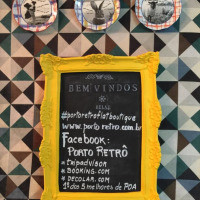 BEM VINDOS
RELAX
#portoretroflatboutique
www.porto retro.com.br
Facebook:
PORTO RETRÔ
# tripadvisor
# BOOKING.COM
# DECOLAR.COM
1º dos 5 melhores de POA